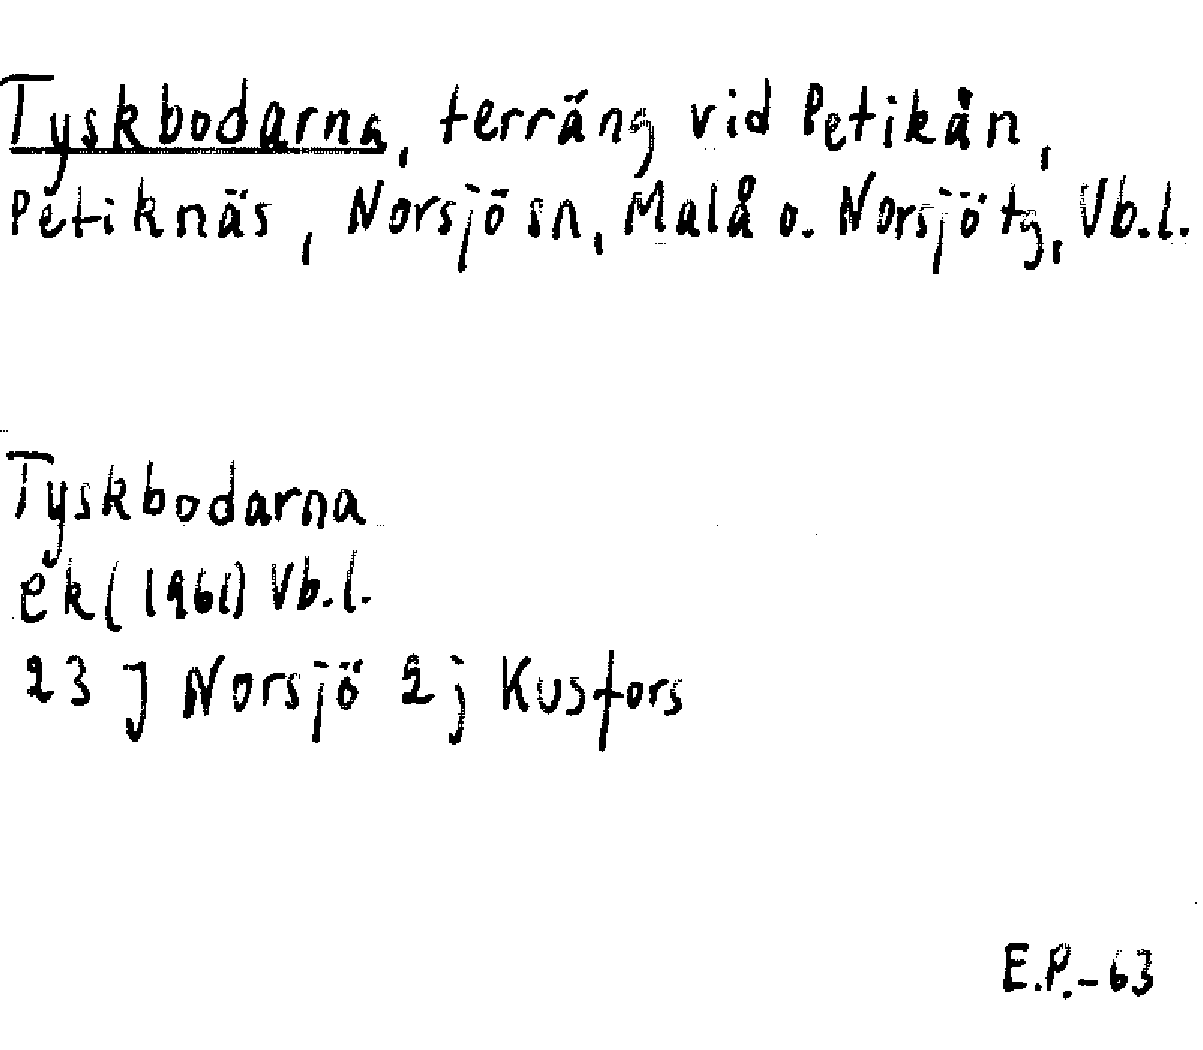 Tyskbodarna, terräng vid Petikån,
Petiknäs, Norsjö sn, Malå o. Norsjö tg, Vb.l.
Tyskbodarna
ek (1961) Vb.l.
23 J Norsjö 2 j Kusfors
E.P.-63